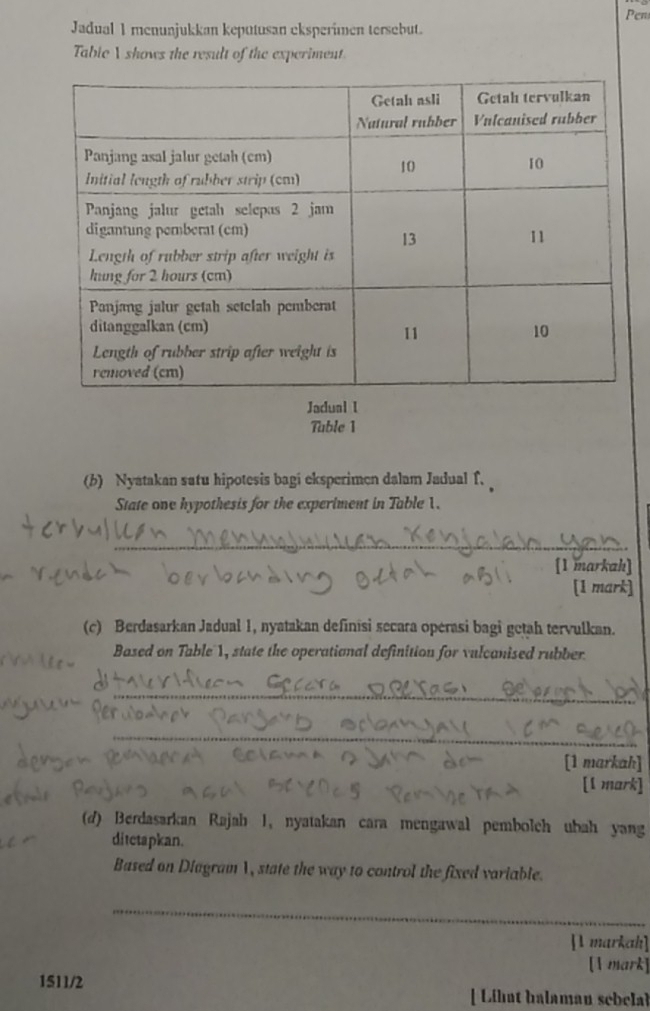 Jadual 1 menunjukkan keputusan eksperimen tersebut.
Table 1 shows the result of the experiment.
Pen
Getah asli
Natural rubber
Getah tervulkan
Vulcanised rubber
Panjang asal jalur getah (cm)
Initial length of rubber strip (cm)
10
10
Panjang jalur getah selepas 2 jam
digantung pemberat (cm)
Length of rubber strip after weight is
hung for 2 hours (cm)
13
11
Panjang jalur getah setelah pemberat
ditanggalkan (cm)
Length of rubber strip after weight is
removed (cm)
11
10
Jadual 1
Table 1
(b) Nyatakan satu hipotesis bagi eksperimen dalam Jadual 1.
State one hypothesis for the experiment in Table 1.
tervulkan menunjukkan kenjalan yan
rendah berbanding getah asli
[1 markah]
[1 mark]
(c) Berdasarkan Jadual 1, nyatakan definisi secara operasi bagi getah tervulkan.
Based on Table 1, state the operational definition for vulcanised rubber.
secara operasi sebagai
perubahan panjang sebanyak 1 cm
dengan pemberat selama 2 jam dan
panjang asal selepas
[1 markah]
[1 mark]
(d) Berdasarkan Rajah 1, nyatakan cara mengawal pemboleh ubah yang
ditetapkan.
Based on Diagram 1, state the way to control the fixed variable.
[1 markah]
[1 mark]
1511/2
[ Lihat halaman sebela